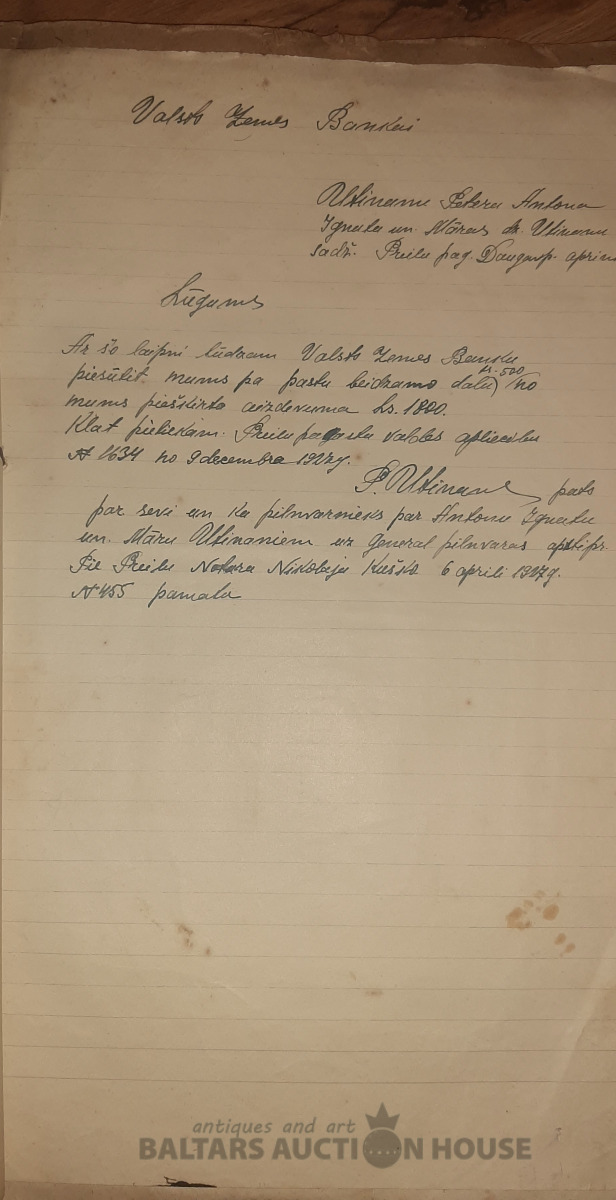 Valsts Zemes Bankai
Utinanu Petera Antona
Ignata un Māras dz. Utinanu
sādž. Preiļu pag. Daugavp. apriņ
Lūgums
Ar šo laipni lūdzam Valsts Zemes Banku
Ls. 500
piesūtīt mums pa pastu beidzamo daļu no
mums piešķirtā aizdevuma Ls. 1800.
Klāt pieliekam Preiļu pagasta valdes apliecību
№ 1634 no 9 decembra 1927g.
P. Utinans pats
par sevi un kā pilnvarnieks par Antonu Ignatu
un Māru Utinaniem uz general pilnvaras apstipr.
Pie Preiļu Notara Nikolaja Kuško 6 aprilī 1927g.
№ 455 pamata
antiques and art
BALTARS AUCTION HOUSE